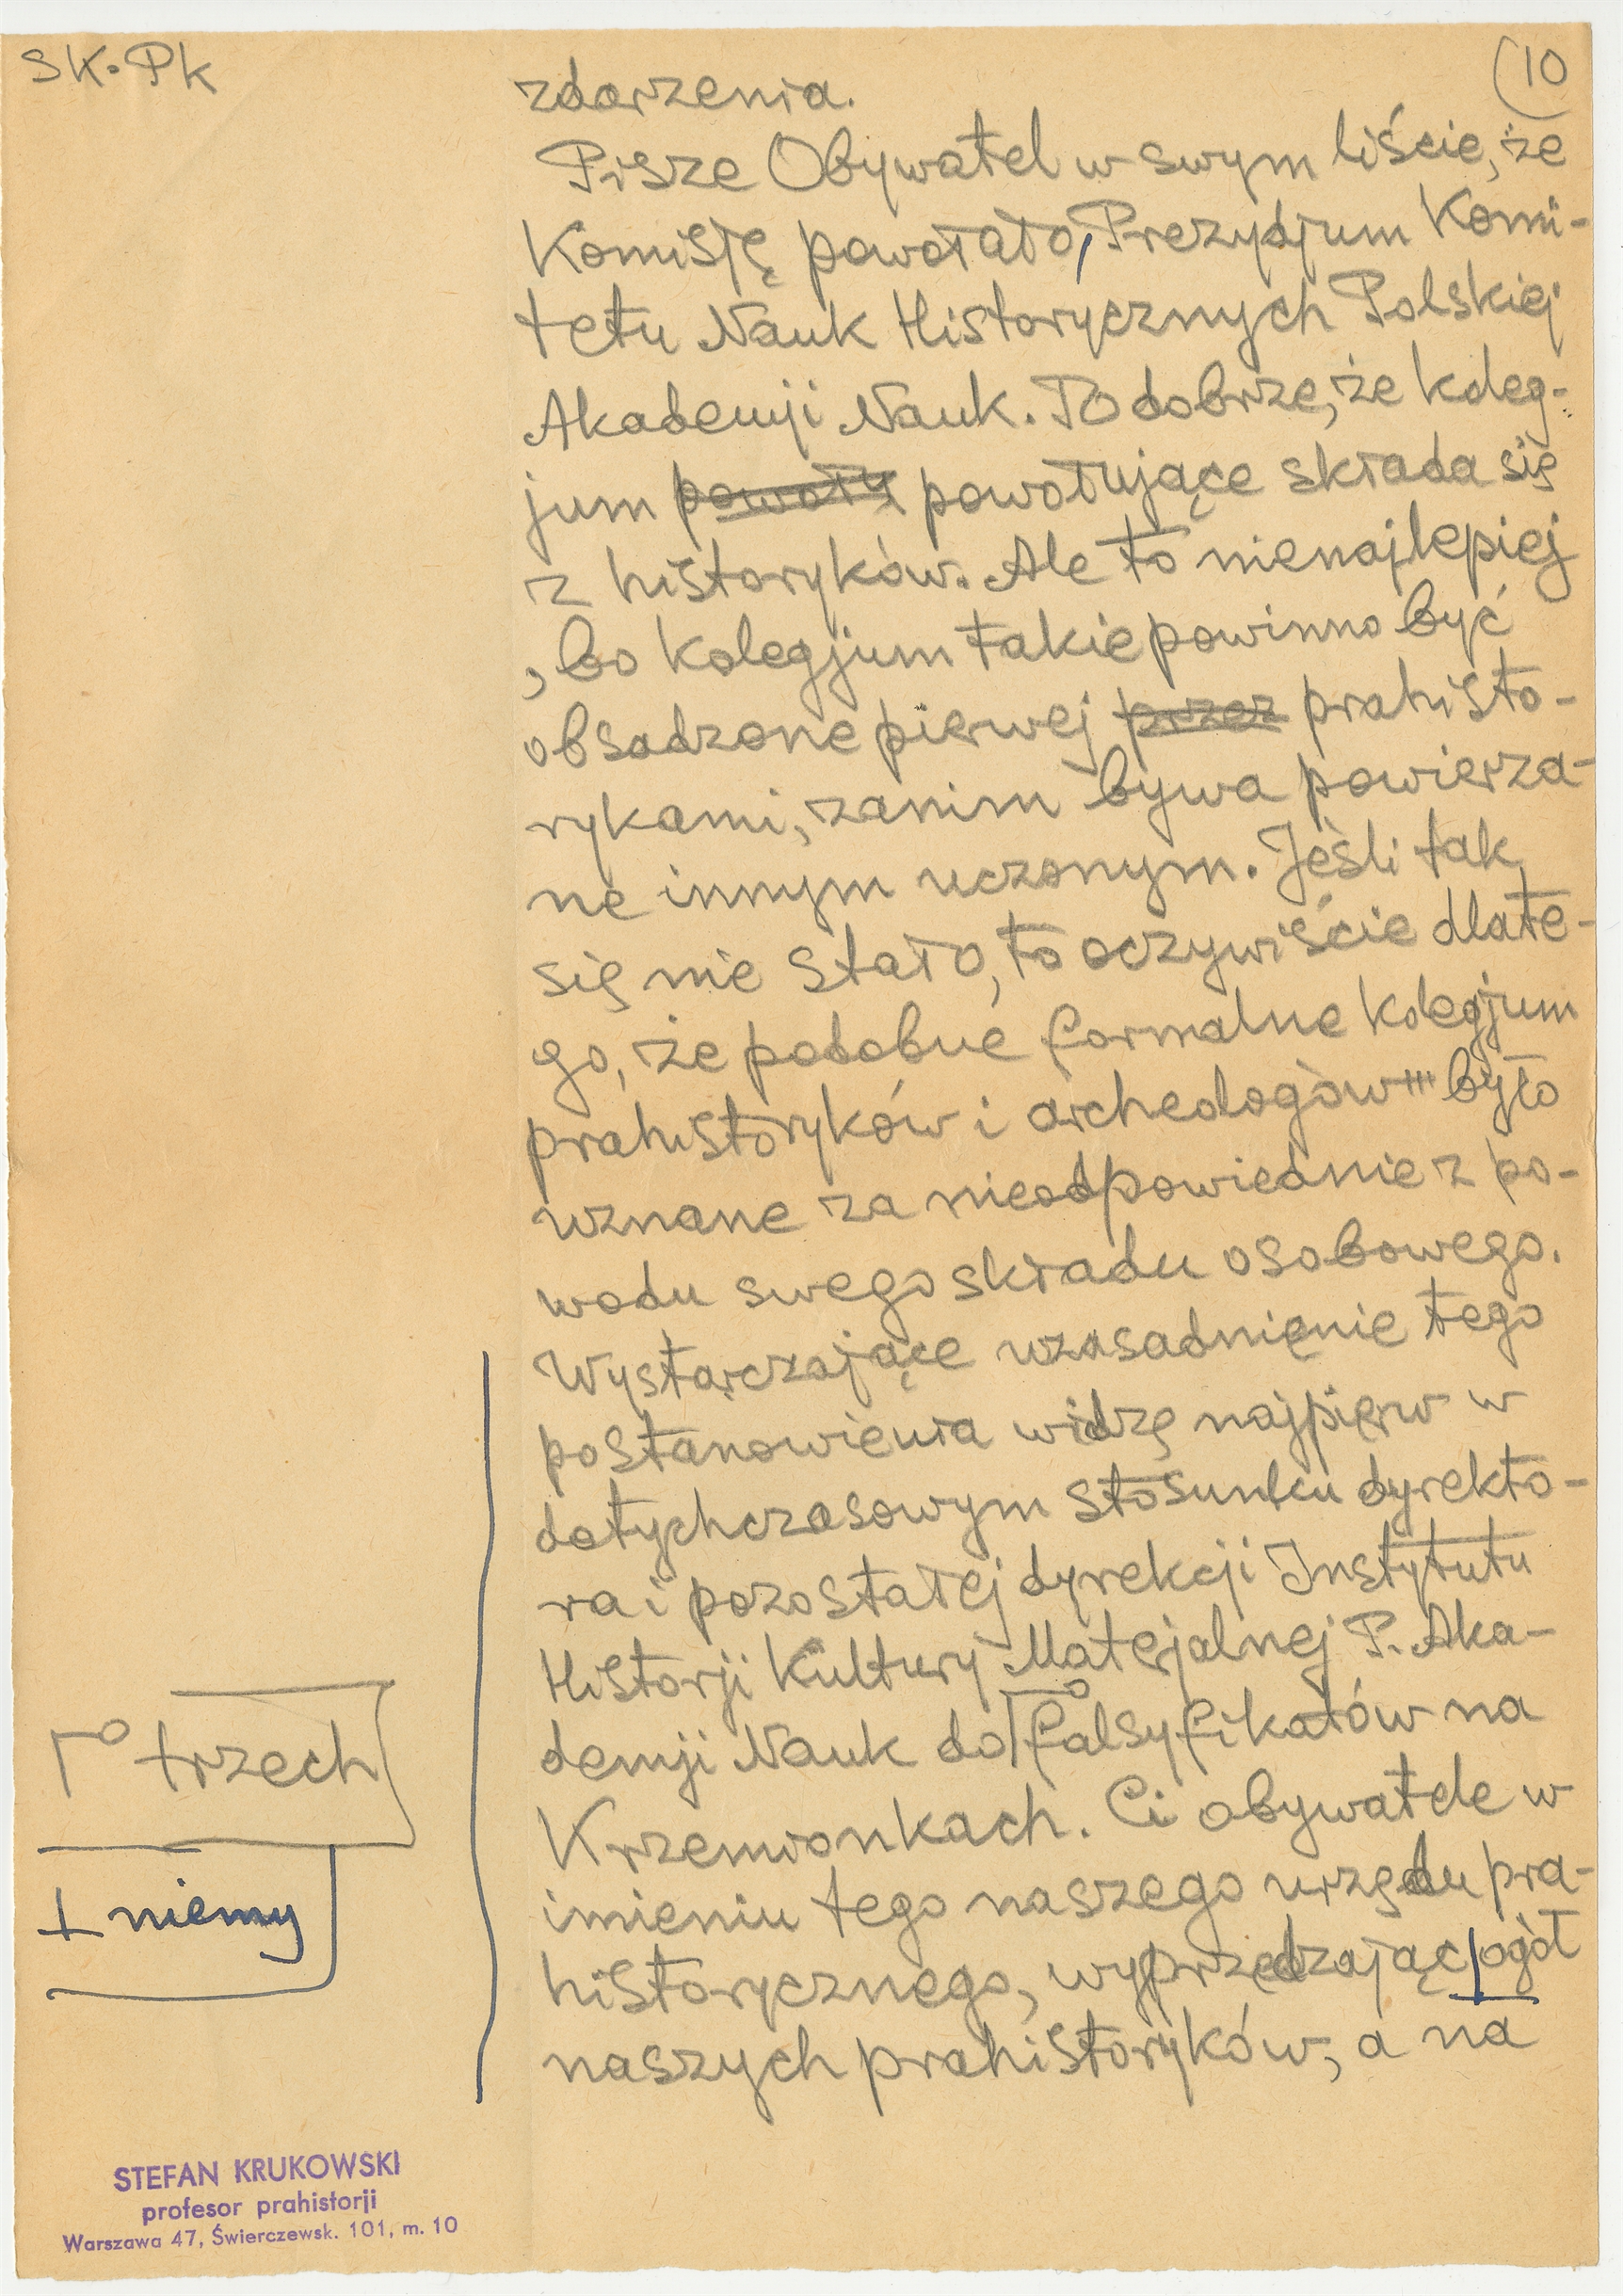 SK. Pk
(10
zdarzenia.
Pisze Obywatel w swym liście, że
Komisję powołało, Prezydjum Komi-
tetu Nauk Historycznych Polskiej
Akademji Nauk. To dobrze, że koleg-
jum powoły powołujące składa się
z historyków. Ale to nienajlepiej
, bo kolegjum takie powinno być
obsadzone pierwej przez prahisto-
rykami, zanim bywa powierza-
ne innym uczonym. Jeśli tak
się nie stało, to oczywiście dlate-
go, że podobne formalne kolegjum
prahistoryków i archeologów było
uznane za nieodpowiednie z po-
wodu swego składu osobowego.
Wystarczające uzasadnienie tego
postanowienia widzę najpierw w
dotychczasowym stosunku dyrekto-
ra i pozostałej dyrekcji Instytutu
Historji Kultury Materjalnej P. Aka-
demji Nauk do falsyfikatów na
Krzemionkach. Ci obywatele w
imieniu tego naszego urzędu pra-
historycznego, wyprzedzając ogół
naszych prahistoryków, a na
trzech
niemy
STEFAN KRUKOWSKI
profesor prahistorji
Warszawa 47, Świerczewsk. 101, m. 10